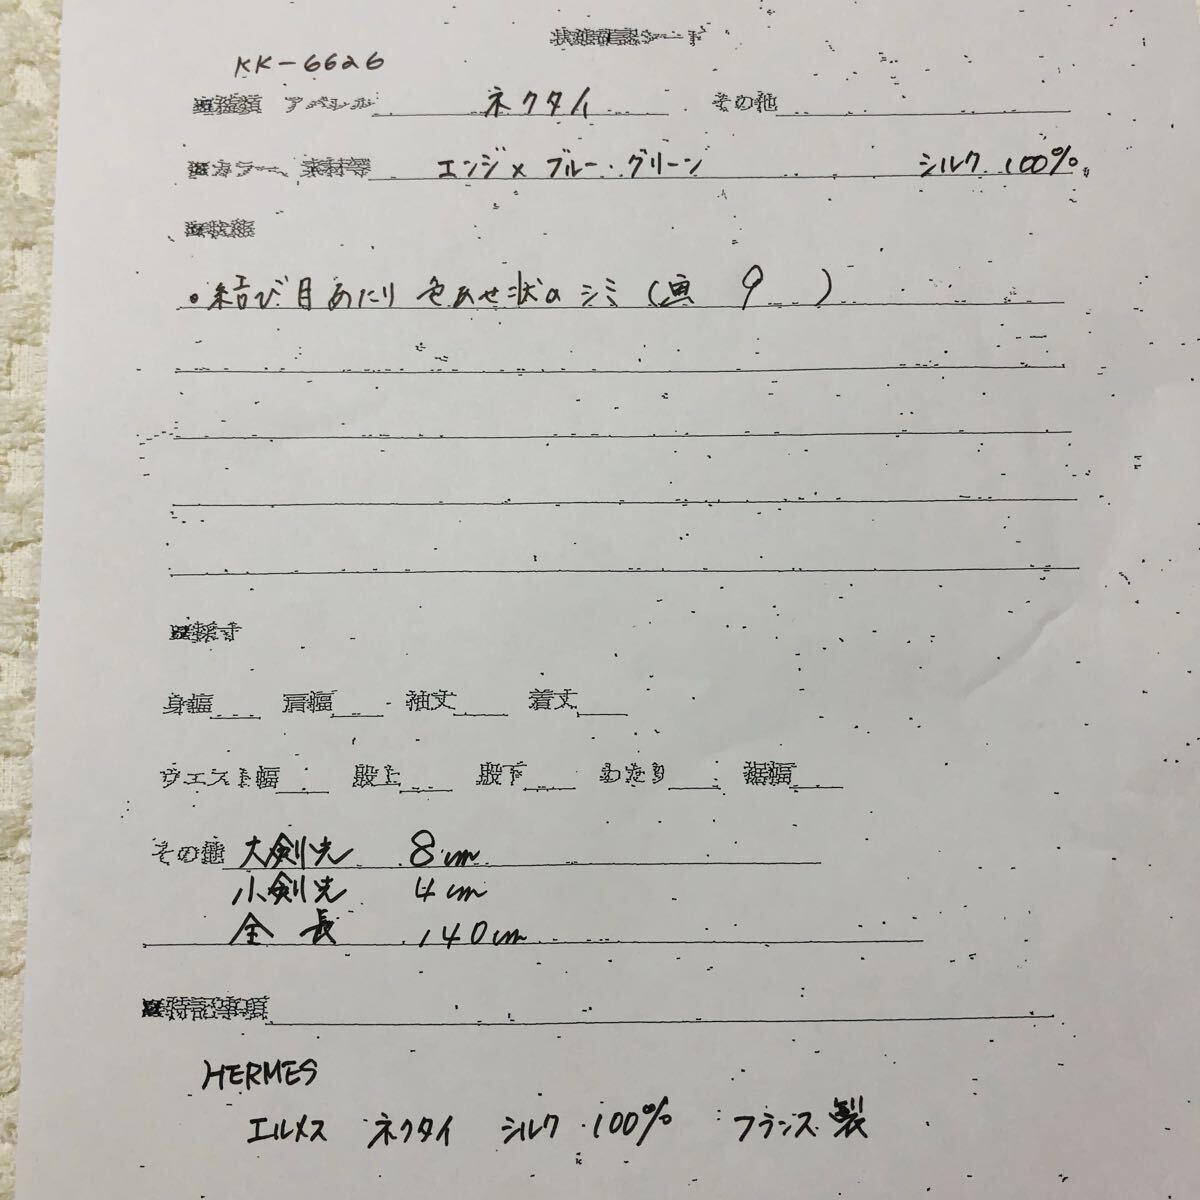 状態確認シート
KK-6626
■種類 アパレル ネクタイ その他
■カラー、素材等 エンジ×ブルー・グリーン シルク 100%
■状態
・結び目あたり 色あせ状のシミ(画 9 )
■採寸
身幅 肩幅 袖丈 着丈
ウエスト幅 股上 股下 わたり 裾幅
その他 大剣先 8cm
小剣先 4cm
全長 140cm
■特記事項
HERMES
エルメス ネクタイ シルク 100% フランス製